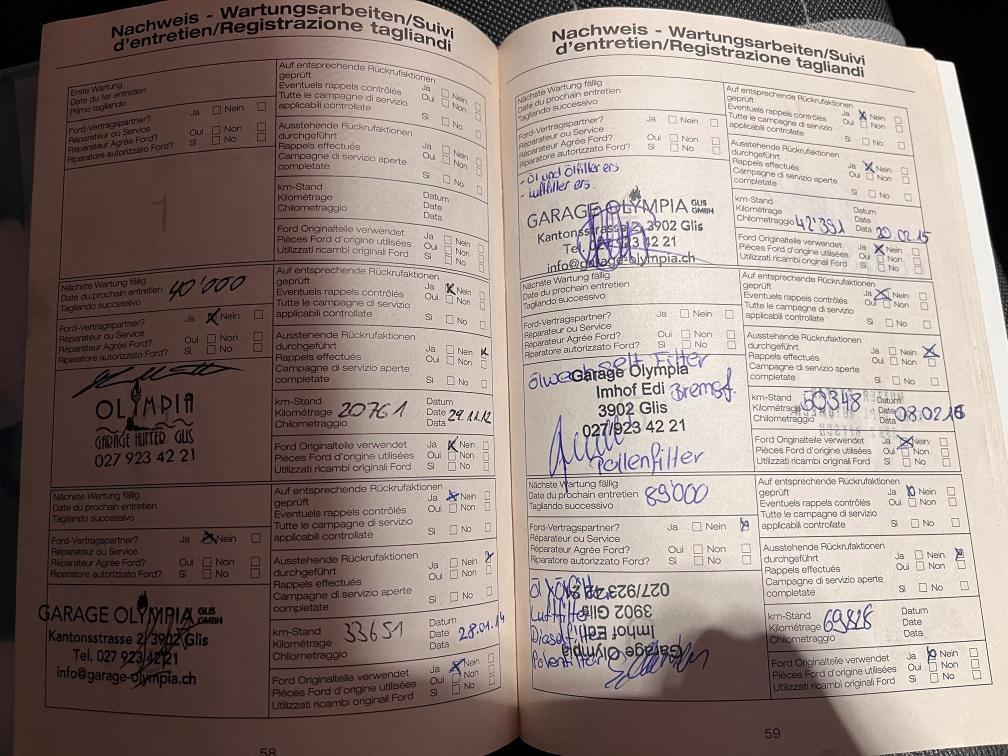 Nachweis - Wartungsarbeiten/Suivi
d'entretien/Registrazione tagliandi
Erste Wartung
Date du 1er entretien
Primo tagliando
Ford-Vertragspartner? Ja Nein
Réparateur ou Service Oui Non
Réparateur Agrée Ford? Si No
Riparatore autorizzato Ford?
1
Auf entsprechende Rückrufaktionen
geprüft Ja Nein
Eventuels rappels contrôlés Oui Non
Tutte le campagne di servizio
applicabili controllate Si No
Ausstehende Rückrufaktionen
durchgeführt Ja Nein
Rappels effectués Oui Non
Campagne di servizio aperte
completate Si No
km-Stand Datum
Kilométrage Date
Chilometraggio Data
Ford Originalteile verwendet Ja Nein
Pièces Ford d'origine utilisées Oui Non
Utilizzati ricambi originali Ford Si No
Nächste Wartung fällig
Date du prochain entretien 40'000
Tagliando successivo
Ford-Vertragspartner? Ja Nein
Réparateur ou Service
Réparateur Agrée Ford? Oui Non
Riparatore autorizzato Ford? Si No
OLYMPIA
GARAGE HUTTER GLIS
027 923 42 21
Auf entsprechende Rückrufaktionen
geprüft Ja Nein
Eventuels rappels contrôlés Oui Non
Tutte le campagne di servizio
applicabili controllate Si No
Ausstehende Rückrufaktionen
durchgeführt Ja Nein
Rappels effectués Oui Non
Campagne di servizio aperte
completate Si No
km-Stand Datum
Kilométrage 20761 Date 29.11.12
Chilometraggio Data
Ford Originalteile verwendet Ja Nein
Pièces Ford d'origine utilisées Oui Non
Utilizzati ricambi originali Ford Si No
Nächste Wartung fällig
Date du prochain entretien
Tagliando successivo
Ford-Vertragspartner? Ja Nein
Réparateur ou Service
Réparateur Agrée Ford? Oui Non
Riparatore autorizzato Ford? Si No
GARAGE OLYMPIA GLIS GMBH
Kantonsstrasse 2, 3902 Glis
Tel. 027 923 42 21
info@garage-olympia.ch
Auf entsprechende Rückrufaktionen
geprüft Ja Nein
Eventuels rappels contrôlés Oui Non
Tutte le campagne di servizio
applicabili controllate Si No
Ausstehende Rückrufaktionen
durchgeführt Ja Nein
Rappels effectués Oui Non
Campagne di servizio aperte
completate Si No
km-Stand Datum
Kilométrage 33651 Date 28.01.14
Chilometraggio Data
Ford Originalteile verwendet Ja Nein
Pièces Ford d'origine utilisées Oui Non
Utilizzati ricambi originali Ford Si No
58
Nachweis - Wartungsarbeiten/Suivi
d'entretien/Registrazione tagliandi
Nächste Wartung fällig
Date du prochain entretien
Tagliando successivo
Ford-Vertragspartner? Ja Nein
Réparateur ou Service
Réparateur Agrée Ford? Oui Non
Riparatore autorizzato Ford? Si No
- Öl und Ölfilter ers
- Luftfilter ers
GARAGE OLYMPIA GLIS GMBH
Kantonsstrasse 2, 3902 Glis
Tel. 027 923 42 21
info@garage-olympia.ch
Auf entsprechende Rückrufaktionen
geprüft Ja Nein
Eventuels rappels contrôlés Oui Non
Tutte le campagne di servizio
applicabili controllate Si No
Ausstehende Rückrufaktionen
durchgeführt Ja Nein
Rappels effectués Oui Non
Campagne di servizio aperte
completate Si No
km-Stand Datum
Kilométrage Date
Chilometraggio 42'391 Data 20.02.15
Ford Originalteile verwendet Ja Nein
Pièces Ford d'origine utilisées Oui Non
Utilizzati ricambi originali Ford Si No
Nächste Wartung fällig
Date du prochain entretien
Tagliando successivo
Ford-Vertragspartner? Ja Nein
Réparateur ou Service
Réparateur Agrée Ford? Oui Non
Riparatore autorizzato Ford? Si No
Ölwechsel Filter
Garage Olympia
Imhof Edi Bremsf.
3902 Glis
027/923 42 21
Pollenfilter
Auf entsprechende Rückrufaktionen
geprüft Ja Nein
Eventuels rappels contrôlés Oui Non
Tutte le campagne di servizio
applicabili controllate Si No
Ausstehende Rückrufaktionen
durchgeführt Ja Nein
Rappels effectués Oui Non
Campagne di servizio aperte
completate Si No
km-Stand Datum
Kilométrage 50348 Date 08.02.16
Chilometraggio Data
Ford Originalteile verwendet Ja Nein
Pièces Ford d'origine utilisées Oui Non
Utilizzati ricambi originali Ford Si No
Nächste Wartung fällig
Date du prochain entretien 89'000
Tagliando successivo
Ford-Vertragspartner? Ja Nein
Réparateur ou Service
Réparateur Agrée Ford? Oui Non
Riparatore autorizzato Ford? Si No
Luftfilter
Dieselfilter
Pollenfilter
Garage Olympia
Imhof Edi
3902 Glis
027/923 42 21
Auf entsprechende Rückrufaktionen
geprüft Ja Nein
Eventuels rappels contrôlés Oui Non
Tutte le campagne di servizio
applicabili controllate Si No
Ausstehende Rückrufaktionen
durchgeführt Ja Nein
Rappels effectués Oui Non
Campagne di servizio aperte
completate Si No
km-Stand Datum
Kilométrage 69828 Date
Chilometraggio Data
Ford Originalteile verwendet Ja Nein
Pièces Ford d'origine utilisées Oui Non
Utilizzati ricambi originali Ford Si No
59